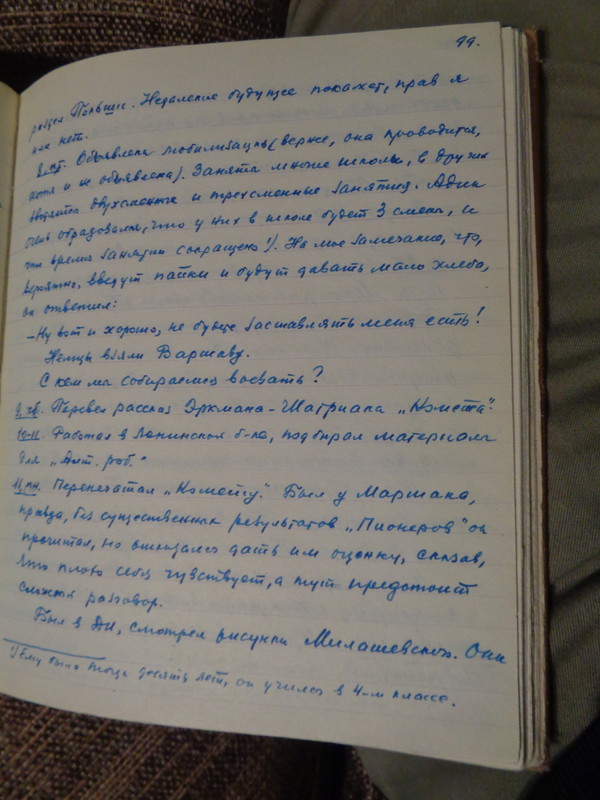 99.
раздел Польши. Недалекое будущее покажет, прав я
или нет.
8.пт. Объявлена мобилизация (вернее, она проводится,
хотя и не объявлена). Заняты многие школы, в других
вводятся двухсменные и трехсменные занятия. Адик
очень обрадовался, что у них в школе будет 3 смены, и
что время занятий сокращено¹). На мое замечание, что,
вероятно, введут пайки и будут давать мало хлеба,
он ответил:
– Ну вот и хорошо, не будете заставлять меня есть!
Немцы взяли Варшаву.
С кем мы собираемся воевать?
9.сб. Перевел рассказ Эркмана-Шатриана „Комета".
10-11. Работал в Ленинской б-ке, подбирал материалы
для „Алт. роб."
11.пн. Перепечатал „Комету". Был у Маршака,
правда, без существенных результатов. „Пионеров" он
прочитал, но отказался дать им оценку, сказав,
что плохо себя чувствует, а тут предстоит
сложный разговор.
Был в ДИ, смотрел рисунки Милашевского. Они
¹) Ему было тогда десять лет, он учился в 4-м классе.